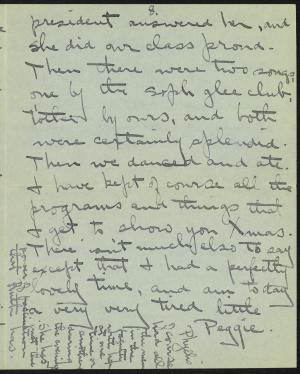 8.
president answered her, and
she did our class proud.
Then there were two songs,
one by the soph glee club,
t'other by ours, and both
were certainly splendid.
Then we danced and ate.
I have kept of course all the
programs and things that
I get to show you Xmas.
There isn't much else to say
except that I had a perfectly
lovely time, and am today
a very very, tired little
Peggie.